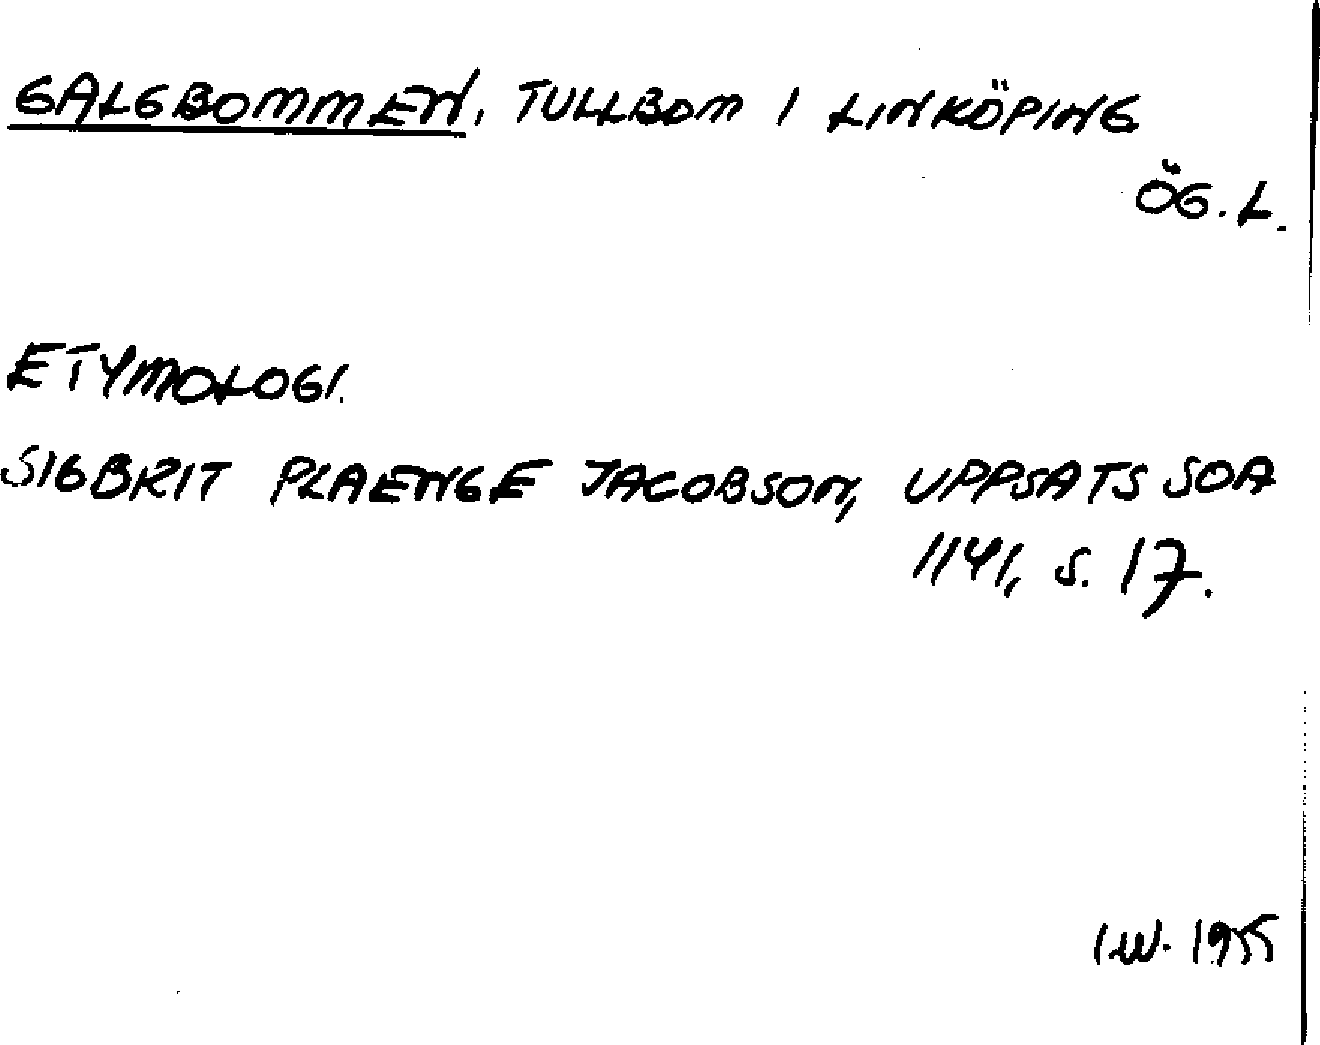 GALGBOMMEN, TULLBOM I LINKÖPING
ÖG. L.
ETYMOLOGI.
SIGBRIT PLAENGE JACOBSON, UPPSATS SOA
1141, S. 17.
IW. 1955